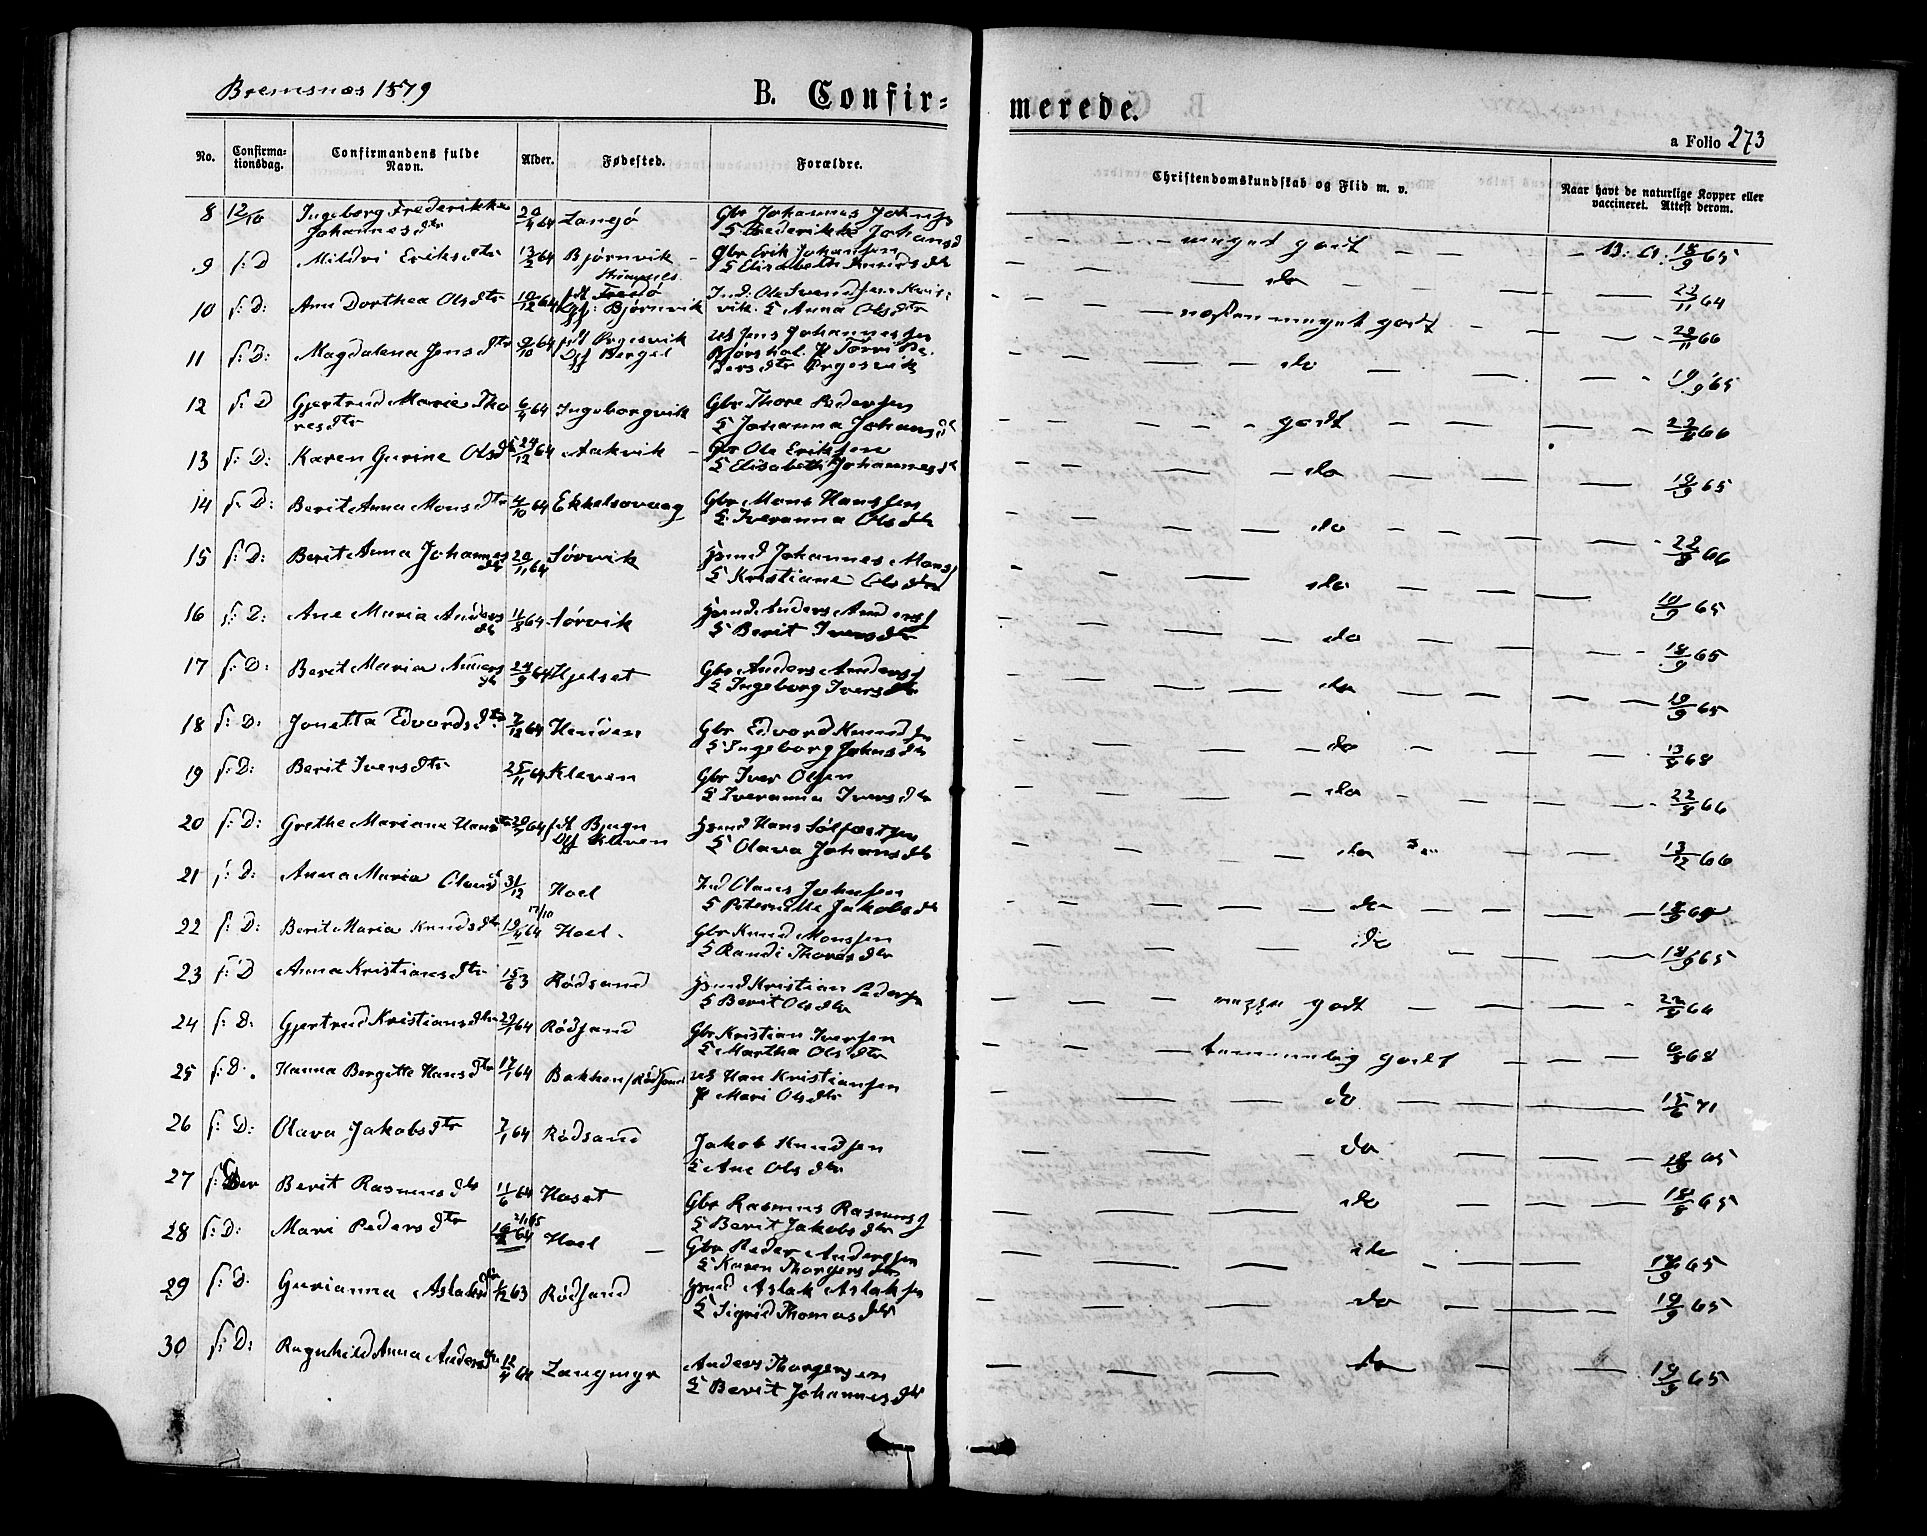 Bremsnæs 1879
B. Confir=
merede.
a Folio 273
No.
Confirma-
tionsdag.
Confirmandens fulde
Navn.
Alder.
Fødested.
Forældre.
Christendomskundskab og Flid m. v.
Naar havt de naturlige Kopper eller
vaccineret. Attest derom.
8 12/10 Ingeborg Frederikke 20/4 64 Langö Gbr Johannes Johnss
Johannesdtr & Frederikke Johansd
meget godt 18/9 65
9 s: D Mildri Eriksdtr 13/2 64 Bjørnvik Gbr Erik Johansen
& Elisabeth Knudsdtr
do 22/11 64
10 s: D: Ane Dorthea Olsdtr 10/12 64 Fredö Ind: Ole Svendsen Kvit-
Bjørnvik vik. & Anna Olsdtr
næsten meget godt 22/11 66
11 s: D: Magdalena Jensdtr 9/10 64 Ørgesvik Jens Johannessen
Berget
dersdtr Ørgesvik
do 19/9 65
12 s: D Gjertrud Marie Tho 6/4 64 Ingeborgvik Gbr Thore Pedersen
resdtr & Johanna Johansdt
godt 22/8 66
13 s: D: Karen Gurine Olsdt 24/12 64 Aakvik Gbr Ole Eriksen
& Elisabeth Johannesdt
do 19/9 65
14 s: D: Berit Anna Monsdtr 4/10 64 Ekkelsovaag Gbr Mons Hanssen
& Iveranna Olsdtr
do 22/8 66
15 s: D: Berit Anna Johannes 20/11 64 Sörvik Johannes Monss
dtr & Kristiane Olsdtr
do 19/9 65
16 s: D: Ane Maria Anders 11/8 64 Sörvik Anders Anderss
dtr & Berit Iversdtr
do 18/9 65
17 s: D: Berit Maria Anders 24/9 64 Hjelset Gbr Anders Anderss
dtr & Ingeborg Iversdtr
do 19/9 65
18 s: D: Jonetta Edvardsdtr 7/12 64 Henden Gbr Edvard Knudsen
& Ingeborg Johnsdtr
do 13/8 68
19 s: D: Berit Iversdtr 25/11 64 Kleven Gbr Iver Olsen
& Iveranna Iversdtr
do 22/8 66
20 s: D: Grethe Mariane Hansdtr 64 Bjugn Hans Sölfestsen
Kleven & Olava Johansdtr
do 13/12 66
21 s: D: Anna Maria Clausd 31/12 Hoel Ind Claus Johnsen
& Peternille Jakobsdtr
do
22 s: D: Berit Maria Knudsdtr 17/10 19/4 64 Hoel Gbr Knud Monssen
& Randi Thoresdtr
do 18/9 65
23 s: D Anna Kristiansdtr 15/6 3 Rödsand Kristian Peders
& Berit Olsdtr
godt 22/8 66
24 s: D: Gjertrud Kristiansdtr 29/1 64 Rödsand Gbr Kristian Iversen
& Martha Olsdtr
temmelig godt 6/8 68
25 s: D. Hanna Bergitte Hansdtr 17/1 64 Bakken/Rödsand Hans Kristiansen
Mari Olsdtr
do 15/6 71
26 s: D: Olava Jakobsdtr 7/1 64 Rödsand Jakob Knudsen
& Ane Olsdtr
do 65
27 Berit Rasmusdtr 11/6 64 Hoset Gbr Rasmus Rasmuss
& Berit Jakobsdtr
do 18/8 65
28 s: D: Mari Pedersdtr 64 Hoel Gbr Peder Anderssen
& Karen Thorgersdtr
do 65
29 s: D: Gurianna Aslaksdtr 1/12 63 Rödsand Aslak Aslaksen
& Sigrid Thomasdtr
do 19/9 65
30 s: D: Ragnhild Anna Andersdtr 12/4 64 Langmyr Anders Thorgersen
& Berit Johannesdtr
do 19/9 65